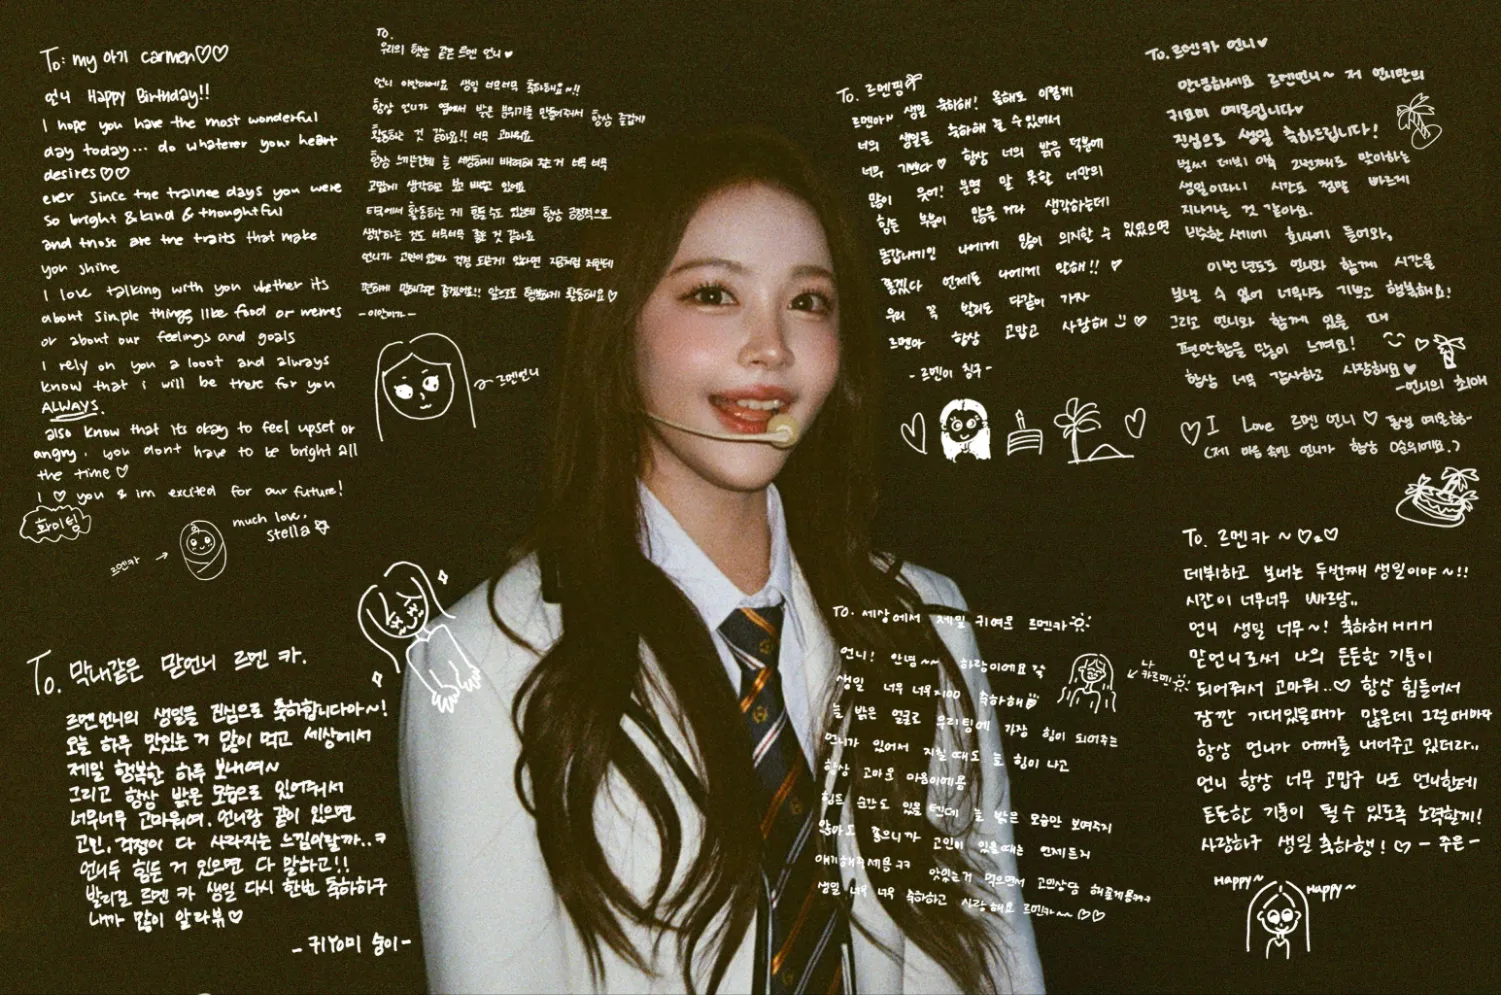 To: my 아기 carmen♡♡
언니 Happy Birthday!!
I hope you have the most wonderful
day today... do whatever your heart
desires♡♡
ever since the trainee days you were
so bright & kind & thoughtful
and those are the traits that make
you shine
I love talking with you whether its
about simple things like food or memes
or about our feelings and goals
I rely on you a looot and always
know that i will be there for you
ALWAYS.
also know that its okay to feel upset or
angry. you dont have to be bright all
the time♡
I ♡ you & im excited for our future!
화이팅
much love,
stella
르멘카
To.
우리의 햇살 같은 르멘 언니♥
언니 이안이에요 생일 너무너무 축하해요~!!
항상 언니가 옆에서 밝은 분위기를 만들어줘서 항상 즐겁게
활동하는 것 같아요!! 너무 고마워요
항상 느끼는건데 늘 세심하게 배려해 주는거 너무 너무
고맙게 생각하고 보고 배우고 있어요
타국에서 활동하는 게 힘들 수도 있는데 항상 긍정적으로
생각하는 것도 너무너무 좋은 것 같아요
언니가 고민이 있거나 걱정 되는게 있다면 지금처럼 저한테
편하게 말해주면 좋겠어요!! 앞으로도 행복하게 활동해요♡
-이안이가-
르멘언니
To. 르멘핑
르멘아~ 생일 축하해! 올해도 이렇게
너의 생일을 축하해 줄 수 있어서
너무 기쁘다♡ 항상 너의 밝음 덕분에
많이 웃어! 분명 말 못할 너만의
힘든 부분이 많을거라 생각하는데
동갑내기인 나에게 많이 의지할 수 있었으면
좋겠다 언제든 나에게 말해!! ♡
우리 꼭 발리도 다같이 가자
르멘아 항상 고맙고 사랑해 ♡
-르멘이 친구-
To. 르멘카 언니♥
안녕하세요 르멘언니~ 저 언니만의
귀요미 예온입니다♥
진심으로 생일 축하드립니다!
벌써 데뷔 이후 2번째로 맞이하는
생일이라니 시간도 정말 빠르게
지나가는 것 같아요.
비슷한 시기에 회사에 들어와,
이번 년도도 언니와 함께 시간을
보낼 수 있어 너무나도 기쁘고 행복해요!
그리고 언니와 함께 있을 때
편안함을 많이 느껴요!
항상 너무 감사하고 사랑해요♥
-언니의 최애
♡ I Love 르멘 언니 ♡ 동생 예온이-
(제 마음 속엔 언니가 항상 0순위에요.)
To. 막내같은 맏언니 르멘 카.
르멘언니의 생일을 진심으로 축하합니다아~!
오늘 하루 맛있는 거 많이 먹고 세상에서
제일 행복한 하루 보내여~
그리고 항상 밝은 모습으로 있어줘서
너무너무 고마워여. 언니랑 같이 있으면
고민, 걱정이 다 사라지는 느낌이랄까..ㅋ
언니두 힘든 거 있으면 다 말하고!!
발리표 르멘 카 생일 다시 한번 축하하구
내가 많이 알라뷰♡
-귀Yomi 숭이-
To. 세상에서 제일 귀여운 르멘카
언니! 안녕~~ 하람이에요
생일 너무 너무×100 축하해
늘 밝은 얼굴로 우리팀에 가장 힘이 되어주는
언니가 있어서 지칠 때도 늘 힘이 나고
항상 고마운 마음이에욤
힘든 순간도 있을 텐데 늘 밝은 모습만 보여주지
않아도 좋으니까 고민이 있을때는 언제든지
얘기해주세용ㅋㅋ 맛있는거 먹으면서 고민상담 해줄게용ㅋㅋㅋ
생일 너무 너무 축하하고 사랑해요 르멘카~~♡♡
나
카르멘
To. 르멘카~♡.♡
데뷔하고 보내는 두번째 생일이야~!!
시간이 너무너무 빠르당..
언니 생일 너무~! 축하해ㅐㅐㅐ
맏언니로써 나의 든든한 기둥이
되어줘서 고마워..♡ 항상 힘들어서
잠깐 기대있을때가 많은데 그럴때마다
항상 언니가 어깨를 내어주고 있더라..
언니 항상 너무 고맙구 나도 언니한테
든든한 기둥이 될 수 있도록 노력할게!
사랑하구 생일 축하행!♡ -주은-
Happy~ Happy~